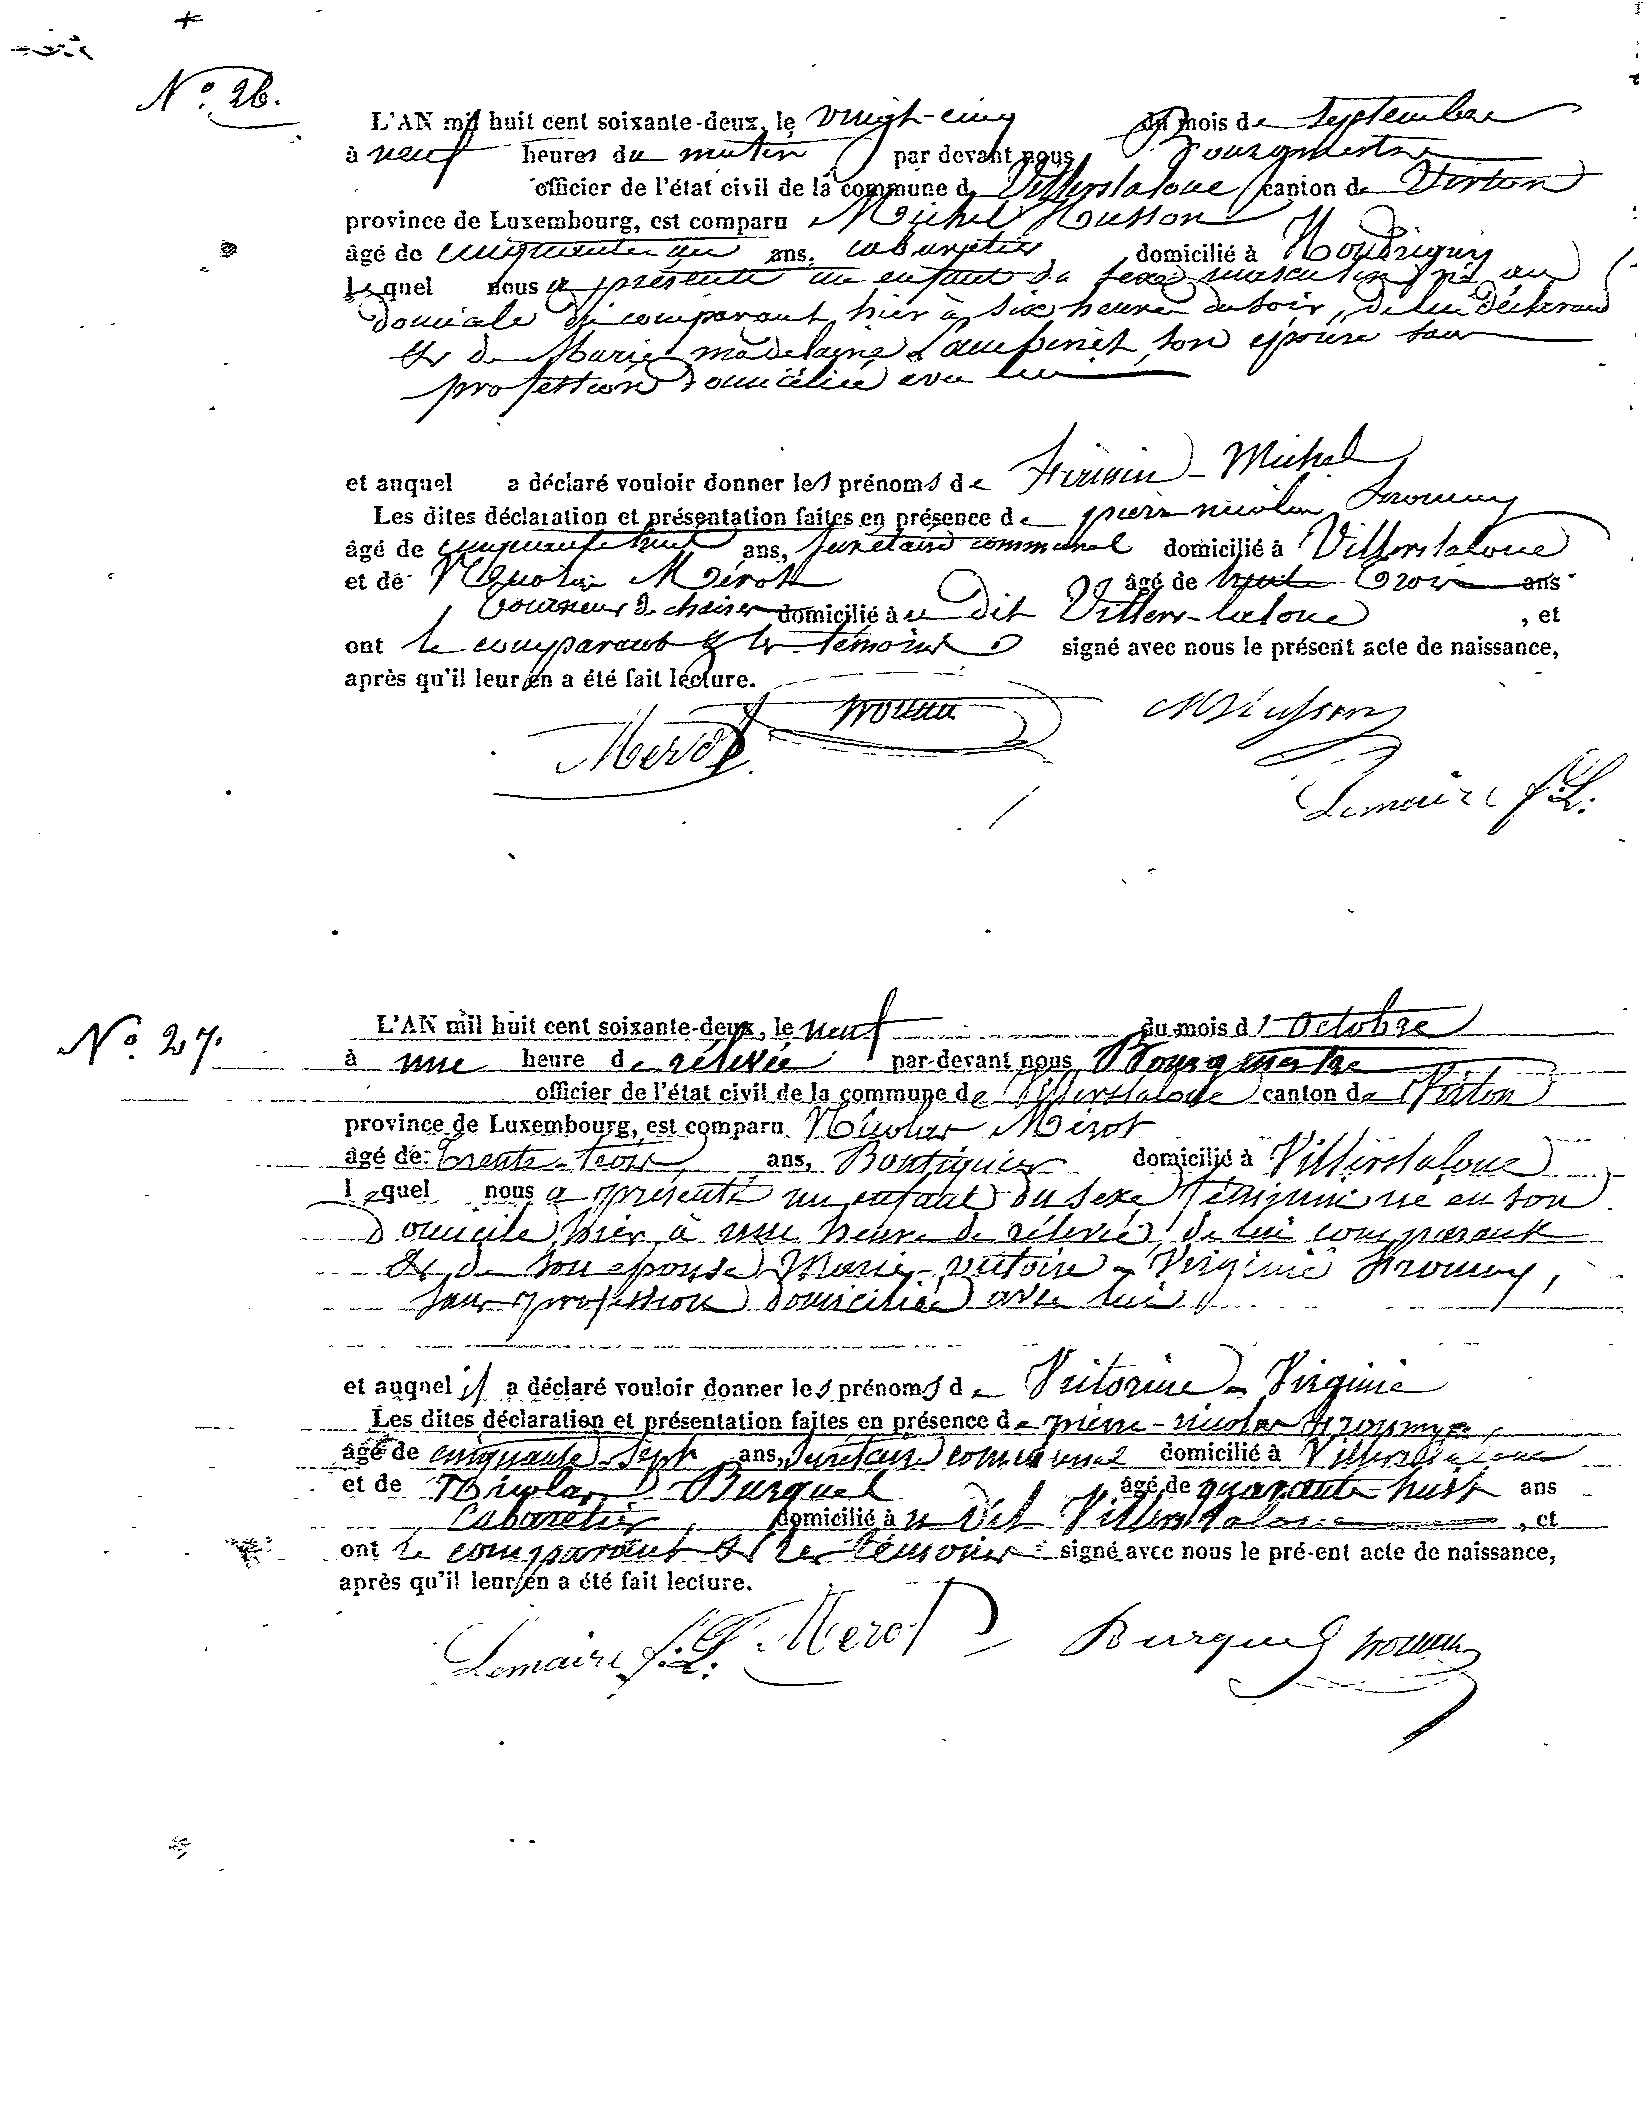 N.° 26.
L'AN mil huit cent soixante-deux, le vingt-cinq du mois de septembre
à neuf heures du matin par devant nous Bourgmestre
officier de l'état civil de la commune de Villerslaloue canton de Virton
province de Luxembourg, est comparu Michel Husson
âgé de cinquante un ans, cabaretier domicilié à Houdrigny
lequel nous a présenté un enfant du sexe masculin né au
domicile du comparant hier à six heures du soir, de lui déclarant
& de Marie madelaine son épouse sans
profession domiciliée avec lui
et auquel a déclaré vouloir donner les prénoms de Firmin - Michel
Les dites déclaration et présentation faites en présence de pierre nicolas
âgé de cinquante huit ans, secrétaire communal domicilié à Villerslaloue
et de Nicolas Mérot âgé de trente trois ans
tourneur de chaises domicilié à u dit Villers-laloue , et
ont le comparant & les témoins signé avec nous le présent acte de naissance,
après qu'il leur en a été fait lecture.
Merot MHusson
Lemaire f.L.
N.° 27.
L'AN mil huit cent soixante-deux, le neuf du mois d' Octobre
à une heure de relevée par-devant nous Bourgmestre
officier de l'état civil de la commune de Villerslaloue canton de Virton
province de Luxembourg, est comparu Nicolas Mérot
âgé de trente-trois ans, Boutiquier domicilié à Villerslaloue
lequel nous a présenté un enfant du sexe féminin né en son
domicile, hier à une heure de relevée, de lui comparant
& de son epouse Marie - victoire - Virginie
sans profession domiciliée avec lui
et auquel il a déclaré vouloir donner les prénoms de Victorine - Virginie
Les dites déclaration et présentation faites en présence de pierre - nicolas
âgé de cinquante-sept ans, secrétaire communal domicilié à Villerslaloue
et de Nicolas Burquel âgé de quarante huit ans
Cabaretier, domicilié à u dit Villerslaloue , et
ont le comparant & les témoins signé avec nous le présent acte de naissance,
après qu'il leur en a été fait lecture.
Lemaire f.L. Merot Burquel